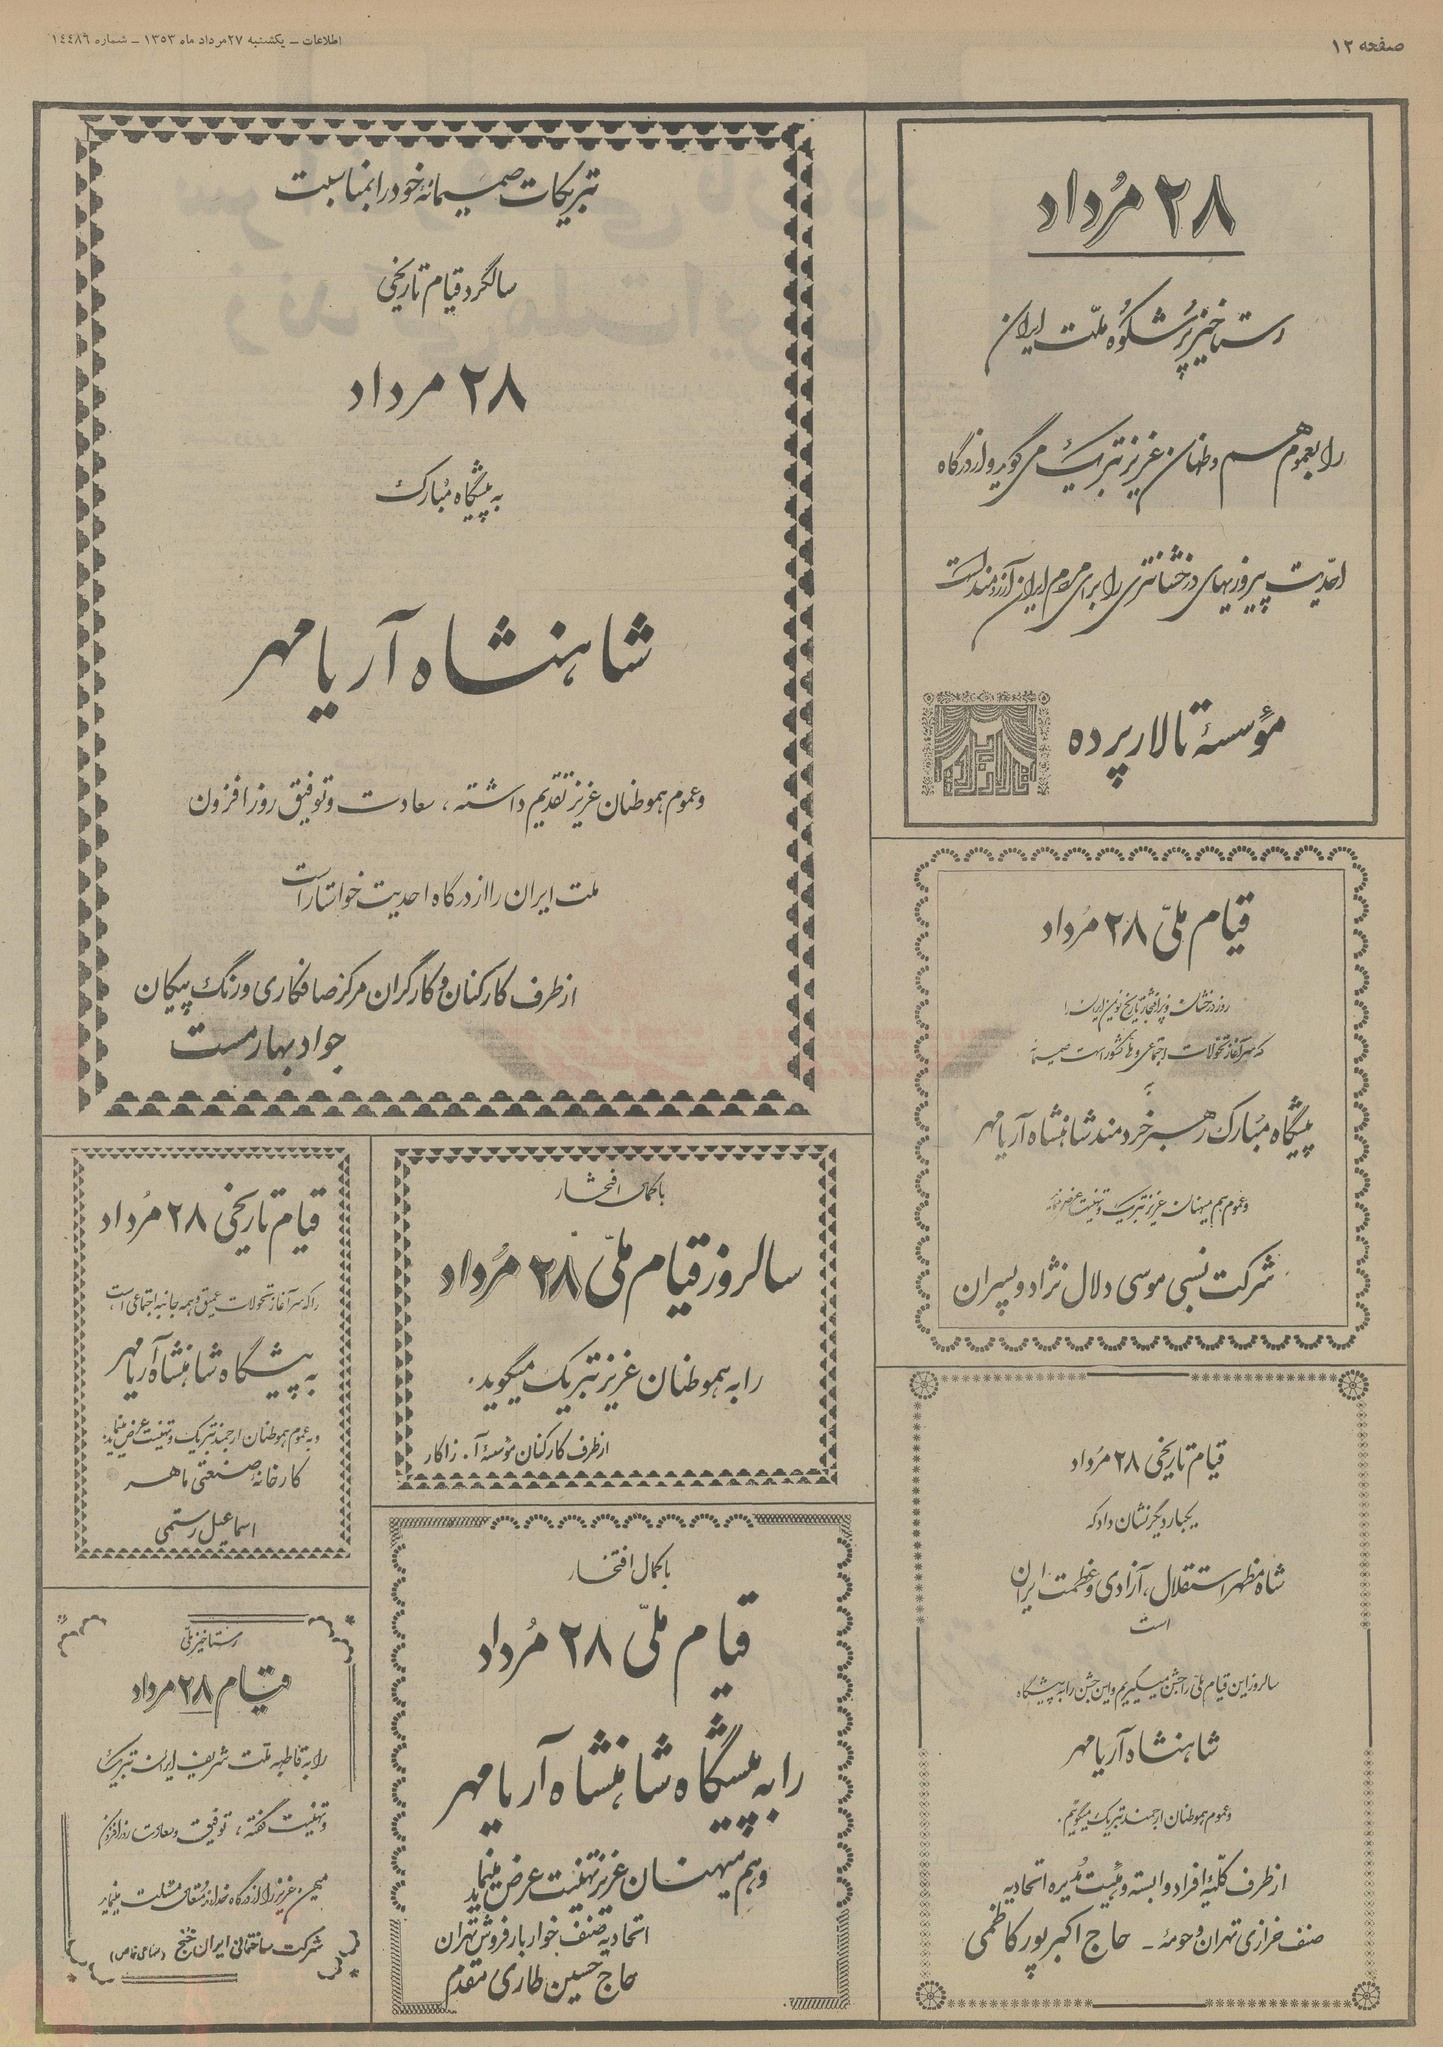 صفحه ۱۲
اطلاعات ـ یکشنبه ۲۷ مرداد ماه ۱۳۵۳ ـ شماره ۱۴۴۸۶
۲۸ مُرداد
رستاخیز پرشکوه ملّت ایران
را بعموم هم وطنان عزیز تبریک می گوید و از درگاه
احدّیت پیروزیهای درخشانتری را برای مردم ایران آرزومند است
مؤسسهٔ تالار پرده
تبریکات صمیمانهٔ خود را بمناسبت
سالگرد قیام تاریخی
۲۸ مرداد
به پیشگاه مُبارک
شاهنشاه آریامهر
و عموم هموطنان عزیز تقدیم داشته ، سعادت و توفیق روز افزون
ملّت ایران را از درگاه احدیت خواستار است
از طرف کارکنان و کارگران مرکز صافکاری و رنگ پیکان
جواد بهارمست
قیام ملّی ۲۸ مُرداد
روز درخشان و پر افتخار تاریخ نوین ایران را
که سرآغاز تحولات اجتماعی و رفاه کشور است صمیمانه
به
پیشگاه مبارک رهبر خردمند شاهنشاه آریامهر
و عموم هم میهنان عزیز تبریک و تهنیت عرض مینماید
شرکت نسبی موسی دلال نژاد و پسران
قیام تاریخی ۲۸ مُرداد
را که سرآغاز تحولات عمیق و همه جانبه اجتماعی است
به پیشگاه شاهنشاه آریامهر
و به عموم هموطنان ارجمند تبریک و تهنیت عرض مینماید.
کارخانهٔ صنعتی ماهر
اسماعیل رستمی
باکمال افتخار
سالروز قیام ملّی ۲۸ مُرداد
را به هموطنان عزیز تبریک میگوید.
از طرف کارکنان مؤسسهٔ آ. زاکار
قیام تاریخی ۲۸ مُرداد
یکبار دیگر نشان داد که
شاه مظهر استقلال، آزادی و عظمت ایران
است
سالروز این قیام ملّی را جشن میگیریم و این جشن را به پیشگاه
شاهنشاه آریامهر
و عموم هموطنان ارجمند تبریک میگوئیم.
از طرف کلّیهٔ افراد وابسته و هیئت مُدیره اتحادیه
صنف خرازی تهران و حومه ـ حاج اکبر پور کاظمی
باکمال افتخار
قیام ملّی ۲۸ مُرداد
را به پیشگاه شاهنشاه آریامهر
و هم میهنان عزیز تهنیت عرض مینماید
اتحادیه صنف خواربار فروش تهران
حاج حسین طاری مقدم
رستاخیز ملّی
قیام ۲۸ مرداد
را به قاطبه ملت شریف ایران تبریک
و تهنیت گفته ، توفیق و سعادت روزافزون
میهن عزیز را از درگاه خداوند متعال مسئلت مینماید
شرکت ساختمانی ایران خنج (سهامی خاص)